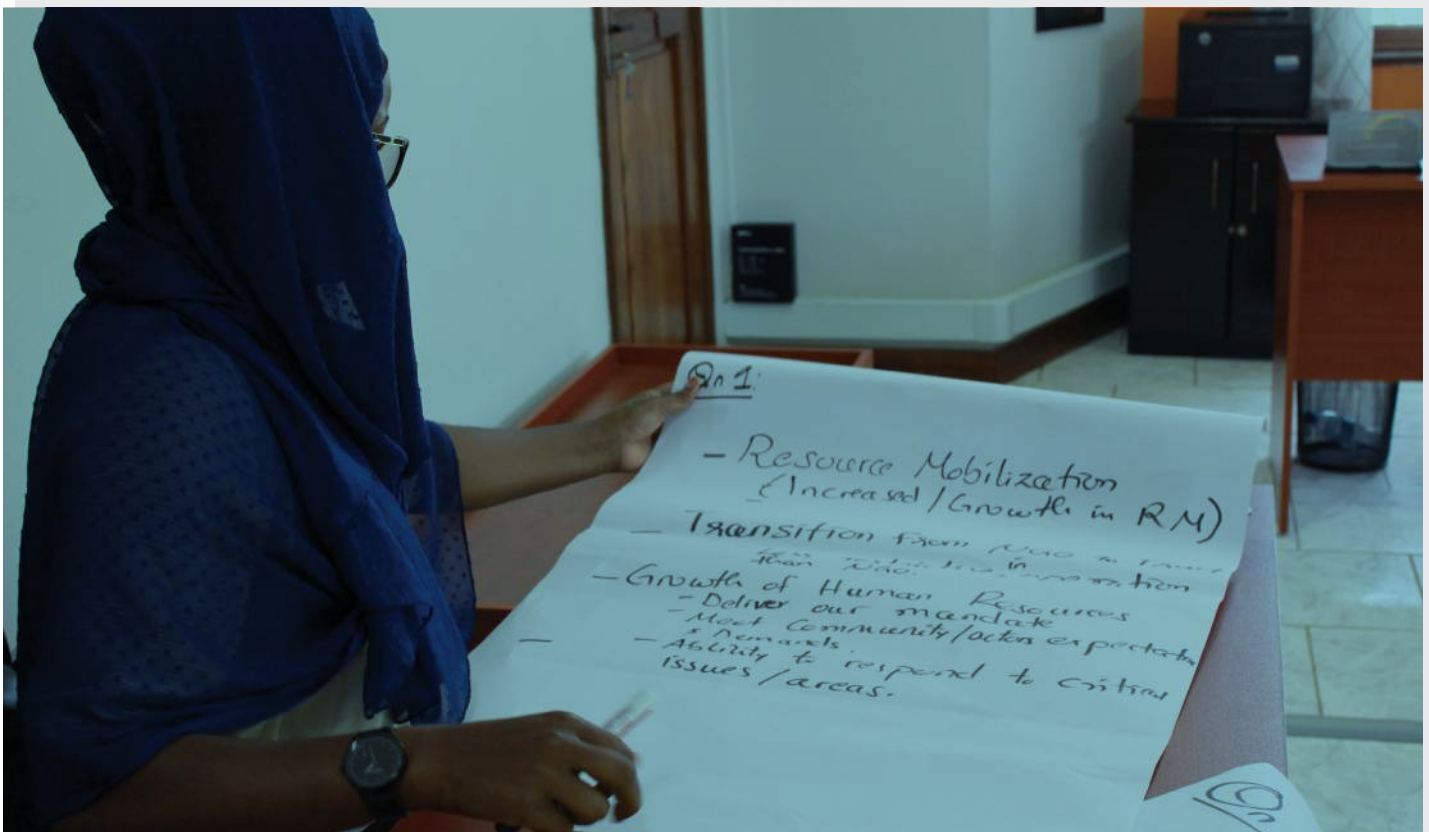 Qn 1:
- Resource Mobilization
(Increased/Growth in RM)
- Transition from NGO to
than in
- Growth of Human Resources
- Deliver our mandate
- Meet Community/actors expectation
& Demands.
- Ability to respond to critical
issues/areas.
Qn